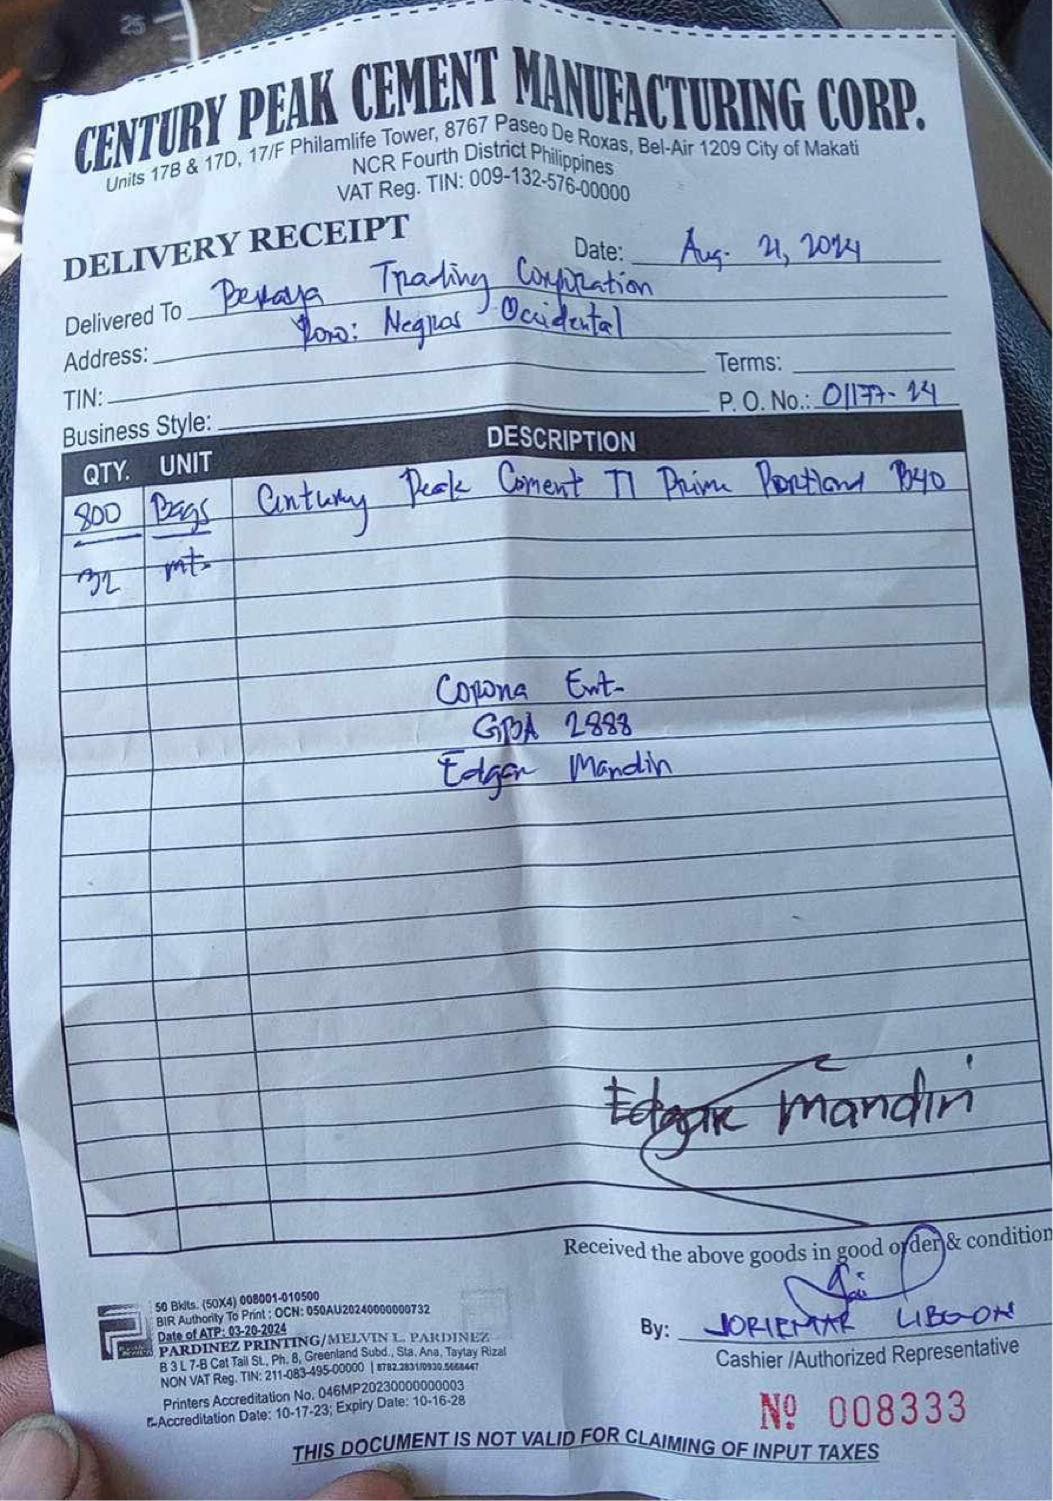 25
CENTURY PEAK CEMENT MANUFACTURING CORP.
Units 17B & 17D, 17/F Philamlife Tower, 8767 Paseo De Roxas, Bel-Air 1209 City of Makati
NCR Fourth District Philippines
VAT Reg. TIN: 009-132-576-00000
DELIVERY RECEIPT
Date: Aug. 21, 2024
Delivered To Beraya Trading Corporation
Address: Poro: Negros Occidental
TIN:
Terms:
Business Style:
P. O. No.: 01177-24
QTY. UNIT DESCRIPTION
800 Bags Century Peak Cement T1 Prime Portland B40
32 mt.
Corona Ent.
GBA 2888
Edgar Mandin
Edgar Mandin
Received the above goods in good order & condition
By: JORIEMAR LIBGON
Cashier /Authorized Representative
50 Bklts. (50X4) 008001-010500
BIR Authority To Print : OCN: 050AU20240000000732
Date of ATP: 03-20-2024
PARDINEZ PRINTING/MELVIN L. PARDINEZ
B 3 L 7-B Cat Tail St., Ph. 8, Greenland Subd., Sta. Ana, Taytay Rizal
NON VAT Reg. TIN: 211-083-495-00000 | 8782.2831/0930.5668447
Printers Accreditation No. 046MP20230000000003
Accreditation Date: 10-17-23; Expiry Date: 10-16-28
Nº 008333
THIS DOCUMENT IS NOT VALID FOR CLAIMING OF INPUT TAXES